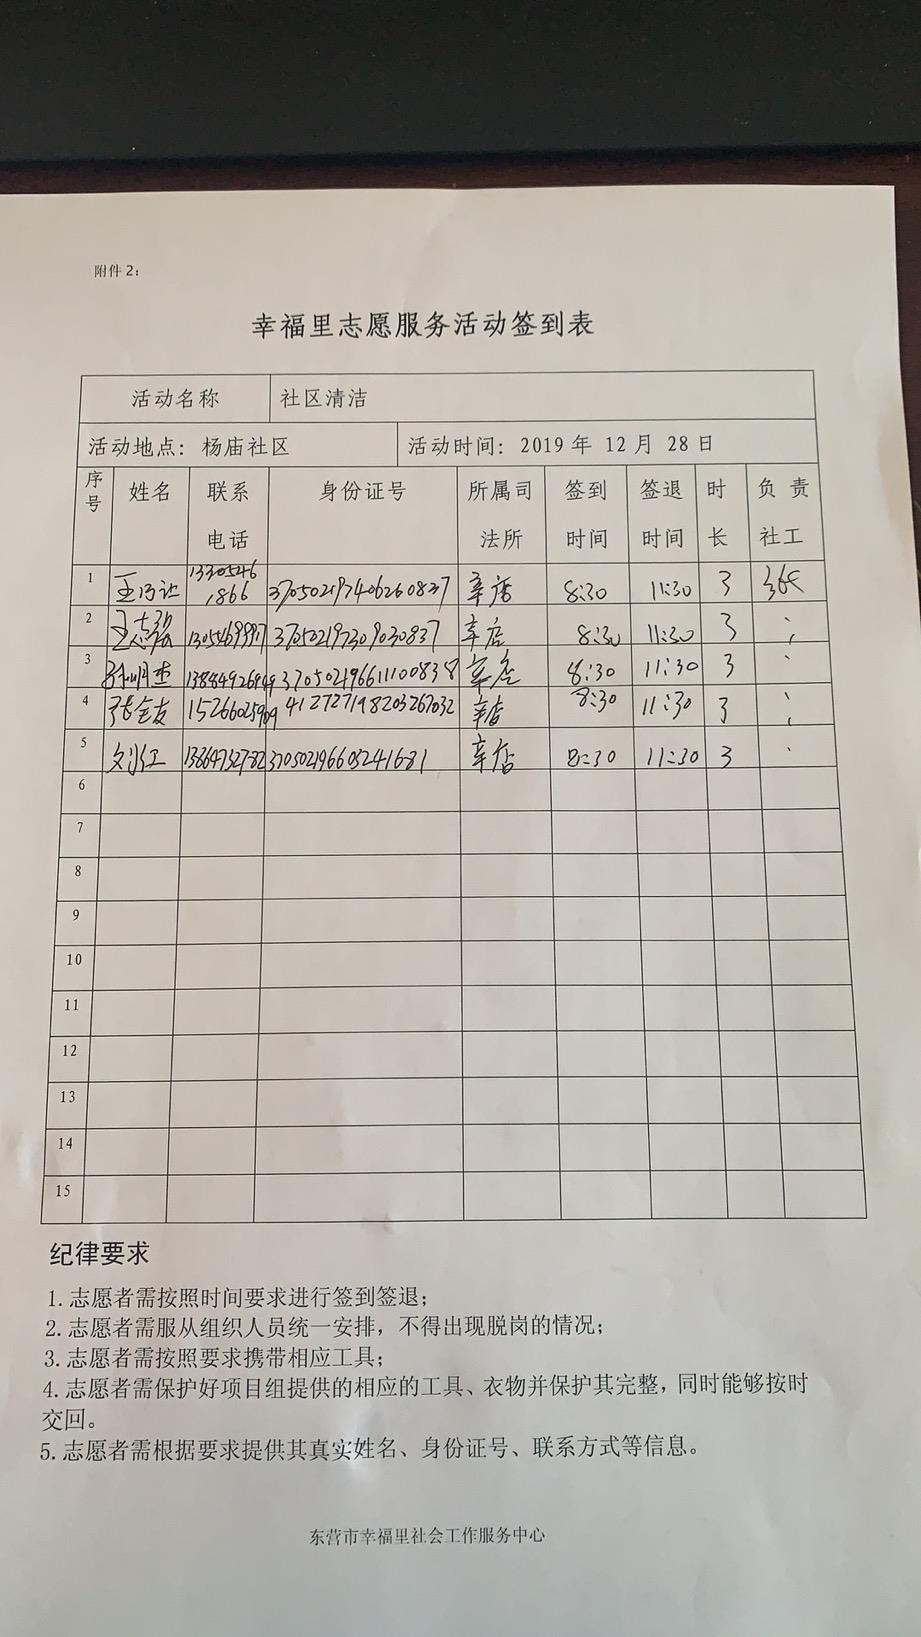 附件2：
幸福里志愿服务活动签到表
活动名称 社区清洁
活动地点：杨庙社区 活动时间：2019年 12月 28日
序号 姓名 联系电话 身份证号 所属司法所 签到时间 签退时间 时长 负责社工
1 13305461866 370502197406260837 辛店 8:30 11:30 3
2 王志强 370502197309030837 辛店 8:30 11:30 3
3 孙明杰 370502196611100838 辛店 8:30 11:30 3
4 张全友 15266025909 412727198203267032 辛店 8:30 11:30 3
5 刘江 13864732782 370502196605241681 辛店 8:30 11:30 3
6
7
8
9
10
11
12
13
14
15
纪律要求
1.志愿者需按照时间要求进行签到签退；
2.志愿者需服从组织人员统一安排，不得出现脱岗的情况；
3.志愿者需按照要求携带相应工具；
4.志愿者需保护好项目组提供的相应的工具、衣物并保护其完整，同时能够按时
交回。
5.志愿者需根据要求提供其真实姓名、身份证号、联系方式等信息。
东营市幸福里社会工作服务中心